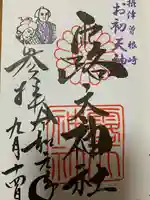 摂津曽根崎
お初天神
露天神社
参拝
九月十四日